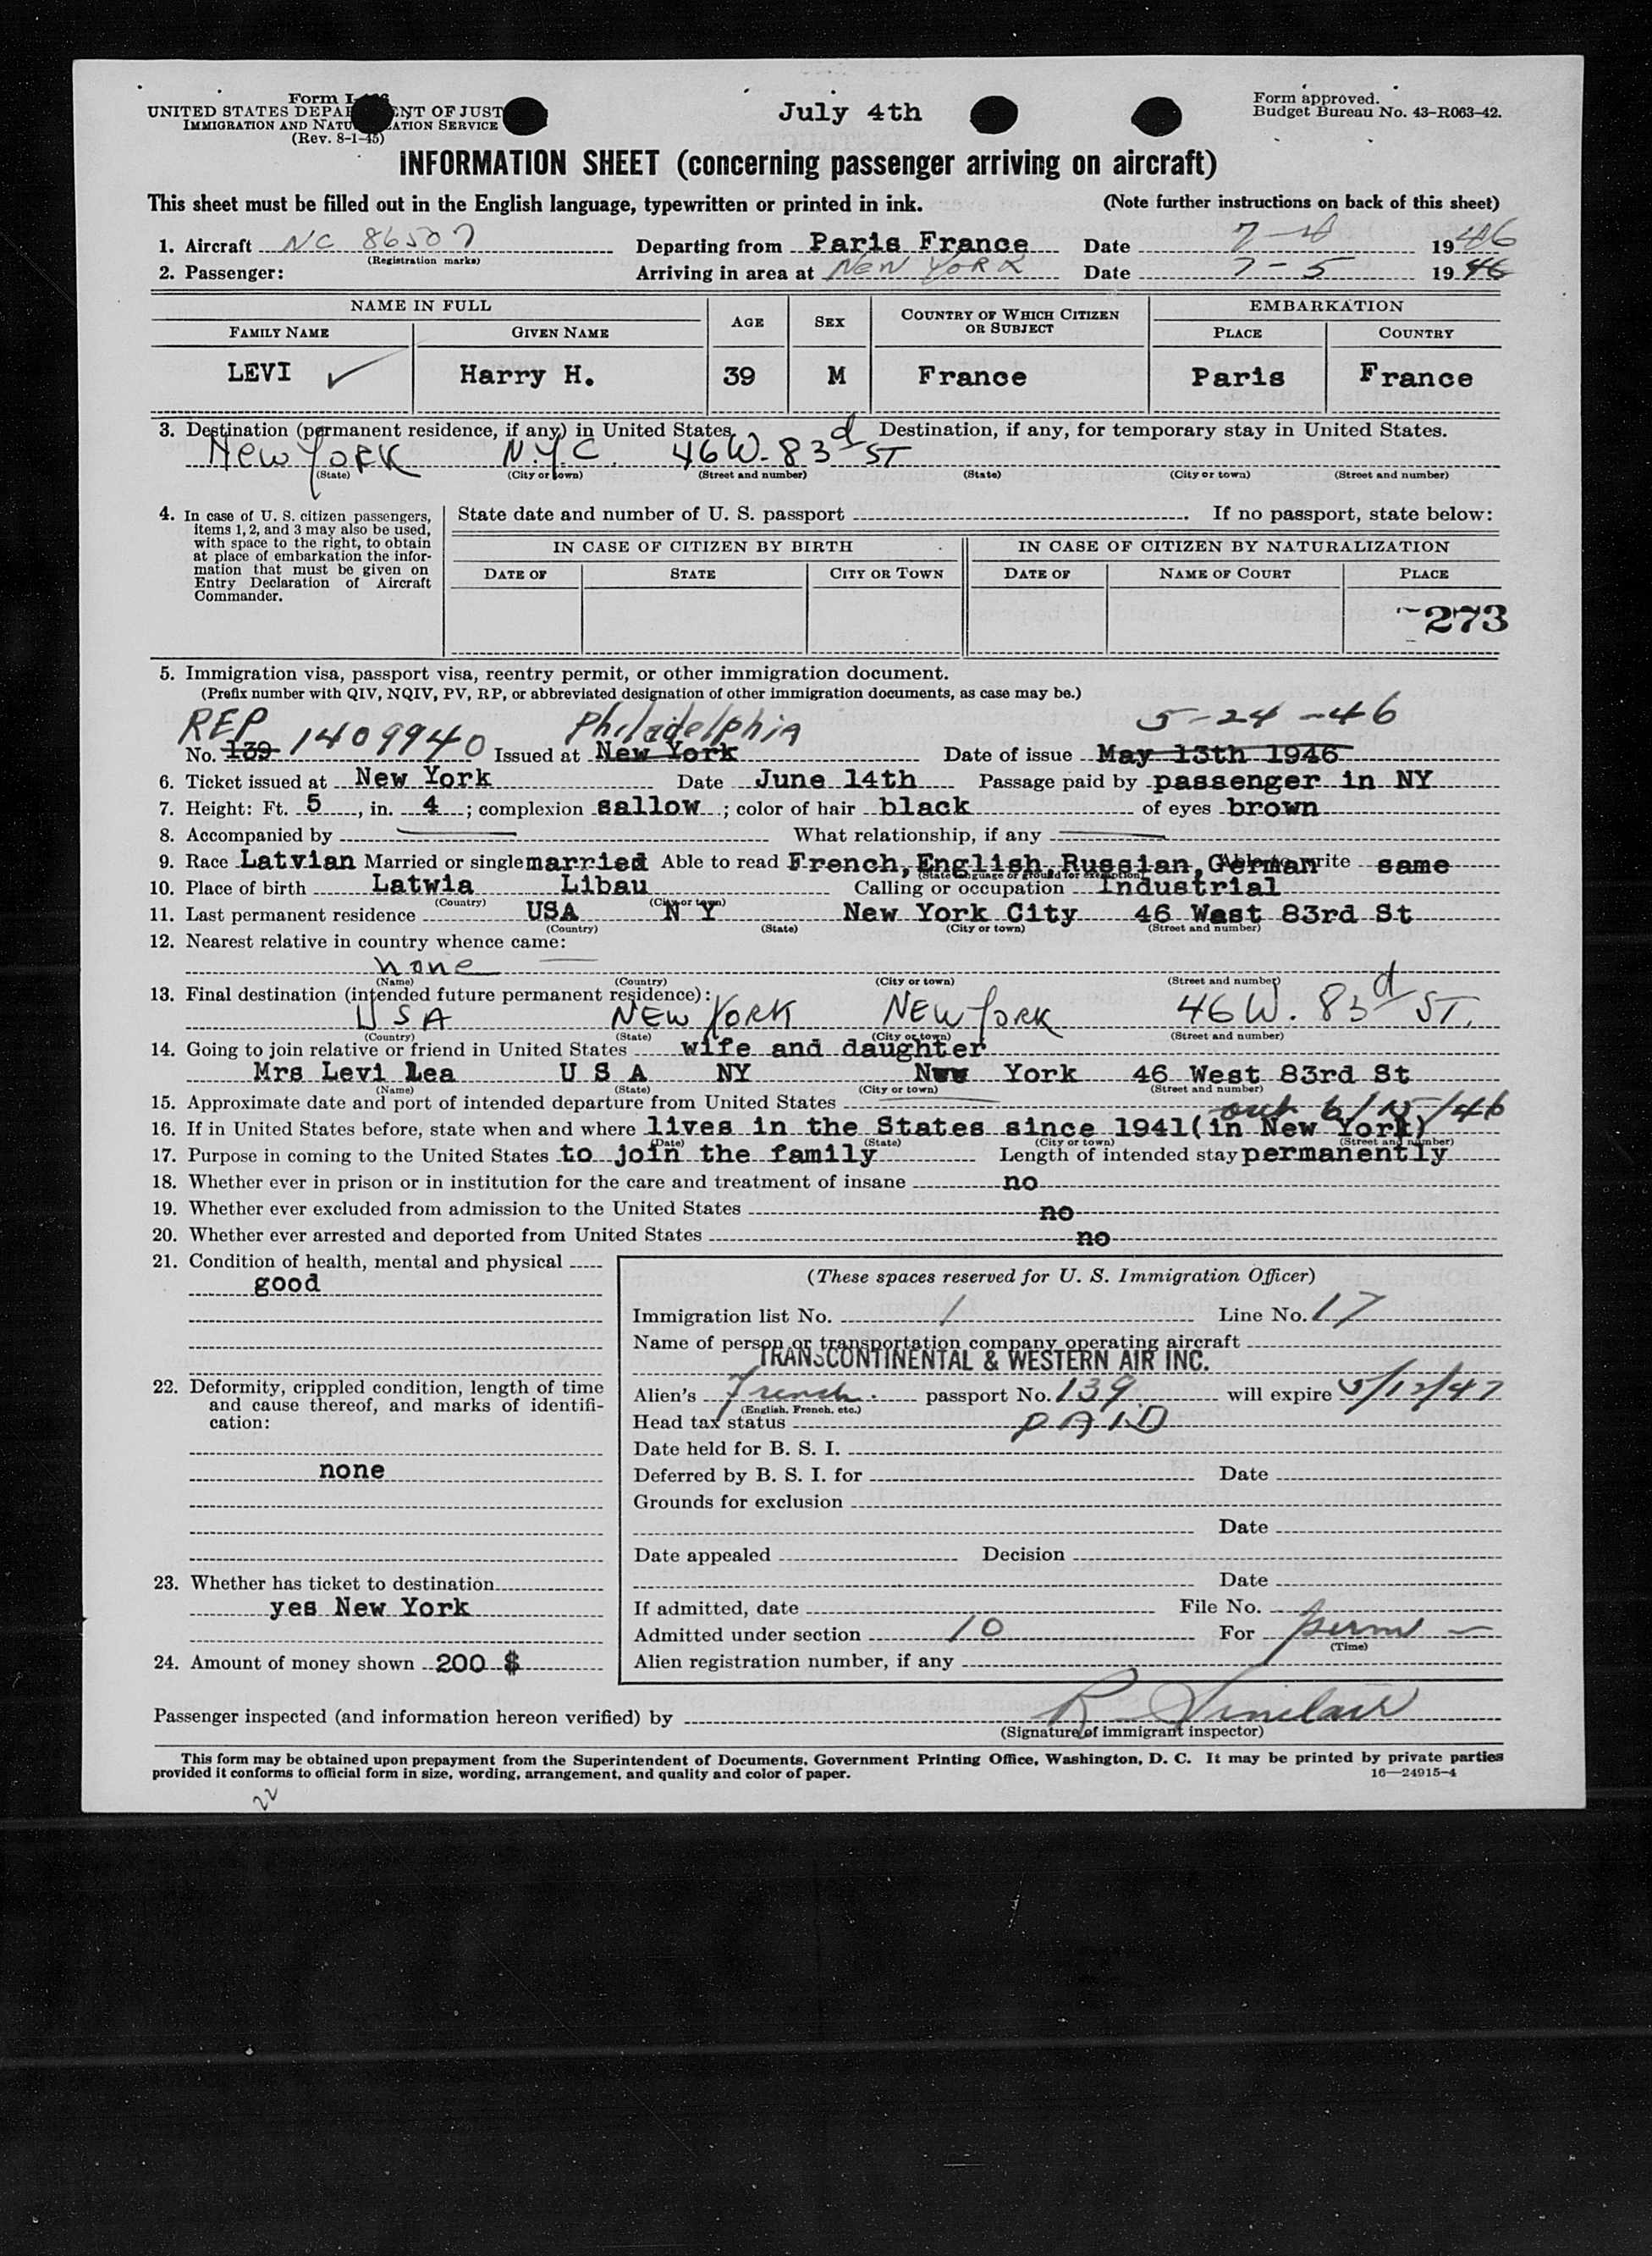 Form I-
July 4th
Form approved.
UNITED STATES DEPA NT OF JUST
Budget Bureau No. 43-R063-42.
IMMIGRATION AND NATU ATION SERVICE
(Rev. 8-1-45)
INFORMATION SHEET (concerning passenger arriving on aircraft)
This sheet must be filled out in the English language, typewritten or printed in ink. (Note further instructions on back of this sheet)
1. Aircraft NC 86507 Departing from Paris France Date 7-4 1946
(Registration marks)
2. Passenger: Arriving in area at NEW YORK Date 7-5 1946
NAME IN FULL AGE SEX COUNTRY OF WHICH CITIZEN OR SUBJECT EMBARKATION
FAMILY NAME GIVEN NAME PLACE COUNTRY
LEVI Harry H. 39 M France Paris France
3. Destination (permanent residence, if any) in United States. Destination, if any, for temporary stay in United States.
New York N.Y.C. 46 W. 83d ST
(State) (City or town) (Street and number) (State) (City or town) (Street and number)
4. In case of U. S. citizen passengers, items 1, 2, and 3 may also be used, with space to the right, to obtain at place of embarkation the information that must be given on Entry Declaration of Aircraft Commander.
State date and number of U. S. passport . If no passport, state below:
IN CASE OF CITIZEN BY BIRTH IN CASE OF CITIZEN BY NATURALIZATION
DATE OF STATE CITY OR TOWN DATE OF NAME OF COURT PLACE
273
5. Immigration visa, passport visa, reentry permit, or other immigration document.
(Prefix number with QIV, NQIV, PV, RP, or abbreviated designation of other immigration documents, as case may be.)
REP Philadelphia 5-24-46
No. 139 1409940 Issued at New York Date of issue May 13th 1946
6. Ticket issued at New York Date June 14th Passage paid by passenger in NY
7. Height: Ft. 5, in. 4; complexion sallow; color of hair black of eyes brown
8. Accompanied by What relationship, if any
9. Race Latvian Married or single married Able to read French, English Russian, German Able to write same
(State language or ground for exemption)
10. Place of birth Latwia Libau Calling or occupation Industrial
(Country) (City or town)
11. Last permanent residence USA N Y New York City 46 West 83rd St
(Country) (State) (City or town) (Street and number)
12. Nearest relative in country whence came:
none
(Name) (Country) (City or town) (Street and number)
13. Final destination (intended future permanent residence):
USA NEW YORK NEW YORK 46 W. 83d ST.
(Country) (State) (City or town) (Street and number)
14. Going to join relative or friend in United States wife and daughter
Mrs Levi Lea U S A NY New York 46 West 83rd St
(Name) (State) (City or town) (Street and number)
15. Approximate date and port of intended departure from United States
out 6/15/46
16. If in United States before, state when and where lives in the States since 1941(in New York)
(Date) (State) (City or town) (Street and number)
17. Purpose in coming to the United States to join the family Length of intended stay permanently
18. Whether ever in prison or in institution for the care and treatment of insane no
19. Whether ever excluded from admission to the United States no
20. Whether ever arrested and deported from United States no
21. Condition of health, mental and physical
good
22. Deformity, crippled condition, length of time and cause thereof, and marks of identification:
none
23. Whether has ticket to destination
yes New York
24. Amount of money shown 200 $
(These spaces reserved for U. S. Immigration Officer)
Immigration list No. 1 Line No. 17
Name of person or transportation company operating aircraft
TRANSCONTINENTAL & WESTERN AIR INC.
Alien's French passport No. 139 will expire 5/12/47
(English, French, etc.)
Head tax status PAID
Date held for B. S. I.
Deferred by B. S. I. for Date
Grounds for exclusion
Date
Date appealed Decision
Date
If admitted, date File No.
Admitted under section 10 For perm
(Time)
Alien registration number, if any
Passenger inspected (and information hereon verified) by R Sinclair
(Signature of immigrant inspector)
This form may be obtained upon prepayment from the Superintendent of Documents, Government Printing Office, Washington, D. C. It may be printed by private parties
provided it conforms to official form in size, wording, arrangement, and quality and color of paper. 16—24915-4
22